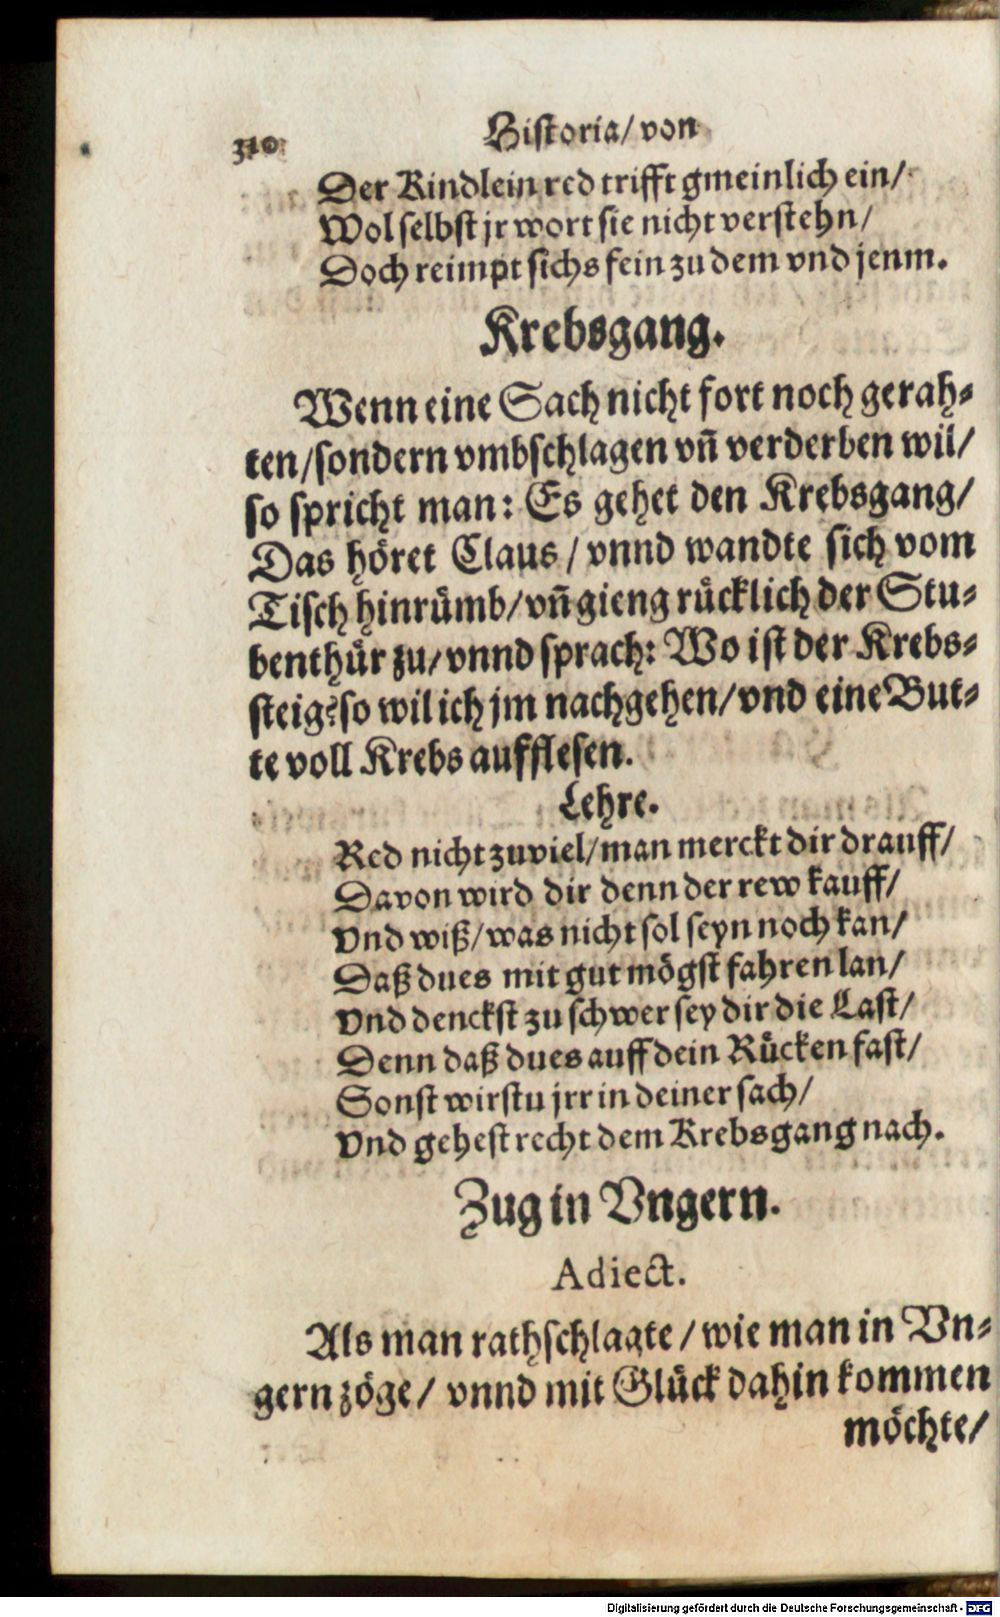 310 Historia/ von
Der Kindlein red trifft gmeinlich ein/
Wol selbst jr wort sie nicht verstehn/
Doch reimpt sichs fein zu dem vnd jenm.
Krebsgang.
Wenn eine Sach nicht fort noch gerah-
ten/sondern vmbschlagen vñ verderben wil/
so spricht man: Es gehet den Krebsgang/
Das höret Claus / vnnd wandte sich vom
Tisch hinrümb/vñ gieng rücklich der Stu-
benthür zu/vnnd sprach: Wo ist der Krebs-
steig? so wil ich jm nachgehen/vnd eine But-
te voll Krebs aufflesen.
Lehre.
Red nicht zuviel/man merckt dir drauff/
Davon wird dir denn der rew kauff/
Vnd wiß/was nicht sol seyn noch kan/
Daß dues mit gut mögst fahren lan/
Vnd denckst zu schwer sey dir die Last/
Denn daß dues auff dein Rücken fast/
Sonst wirstu jrr in deiner sach/
Vnd gehest recht dem Krebsgang nach.
Zug in Vngern.
Adiect.
Als man rathschlagte / wie man in Vn-
gern zöge/ vnnd mit Glück dahin kommen
möchte/
Digitalisierung gefördert durch die Deutsche Forschungsgemeinschaft - DFG